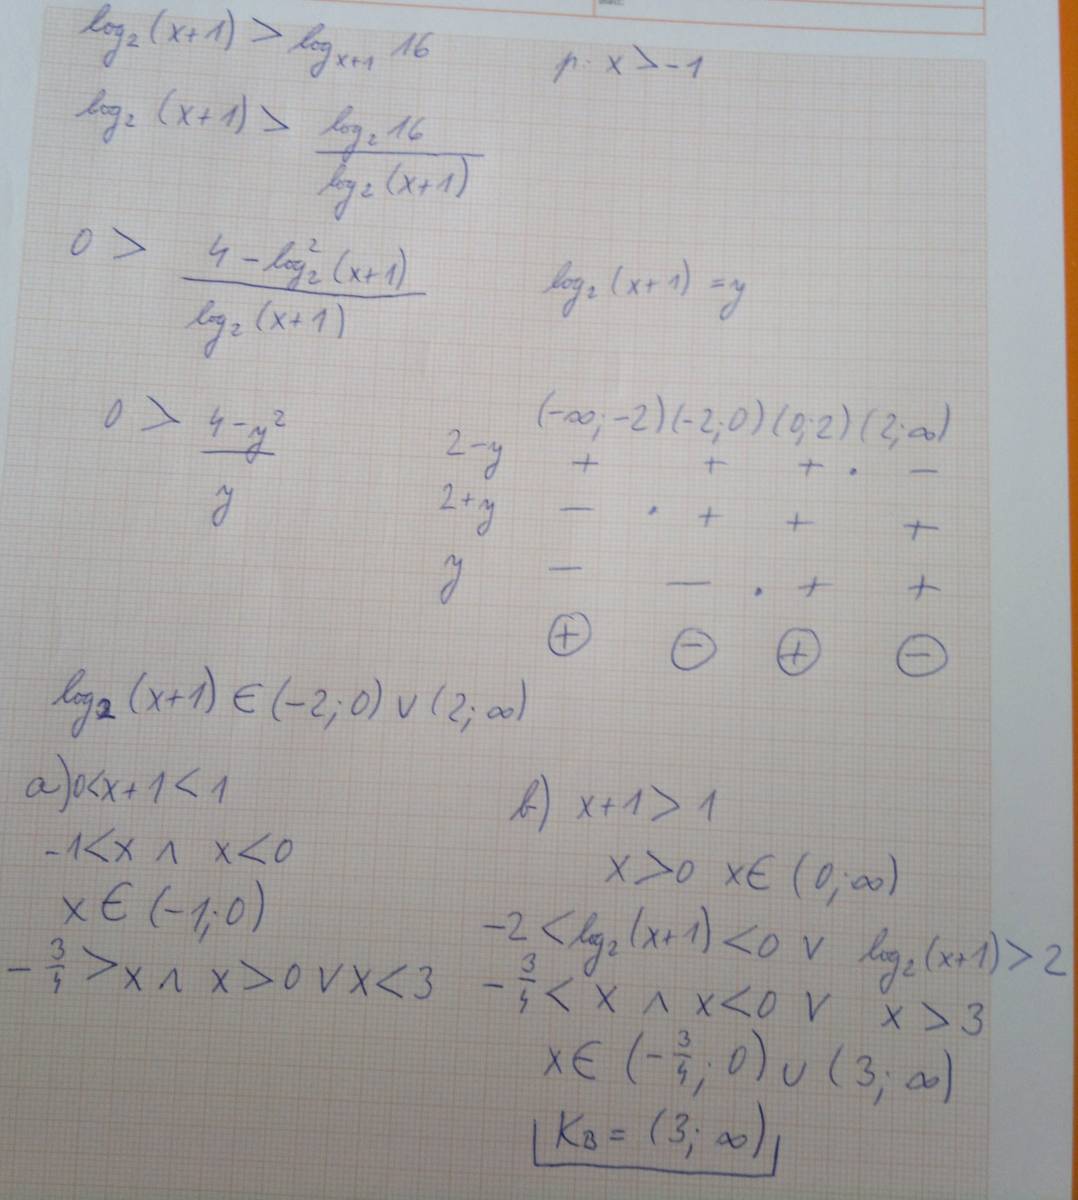 log₂(x+1) > logₓ₊₁ 16    p: x > -1
log₂(x+1) > log₂16 / log₂(x+1)
0 > (4 - log₂²(x+1)) / log₂(x+1)    log₂(x+1) = y
0 > (4 - y²) / y
(-∞; -2) (-2; 0) (0; 2) (2; ∞)
2-y + + + · -
2+y - · + + +
y - - · + +
⊕ ⊖ ⊕ ⊖
log₂(x+1) ∈ (-2; 0) ∨ (2; ∞)
a) 0<x+1<1
-1<x ∧ x<0
x ∈ (-1; 0)
-3/4 > x ∧ x > 0 ∨ x < 3
b) x+1 > 1
x>0 x∈ (0; ∞)
-2 < log₂(x+1) < 0 ∨ log₂(x+1) > 2
-3/4 < x ∧ x < 0 ∨ x > 3
x∈ (-3/4; 0) ∪ (3; ∞)
K_B = (3; ∞)